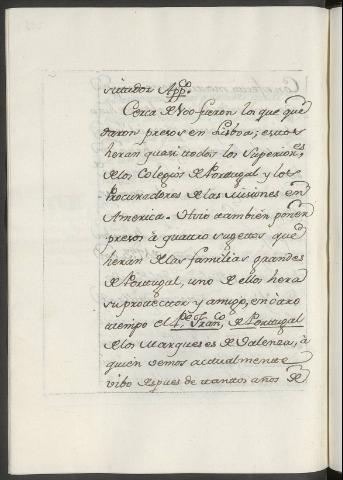 sitador App.co
Cerca de 100 fueron los que que
daron presos en Lisboa; estos
heran quasi todos los superiores,
de los Colegios de Portugal y los
Procuradores de las Misiones en
America. Hizo tambien poner
presos à quattro sugettos que
heran de las familias grandes
de Portugal, uno de ellos hera
su protector y amigo, en otro
tiempo el P.e Fran.co de Portugal
de los Marqueses de Valenza, à
quien vemos actualmente
vibo despues de tantos años de